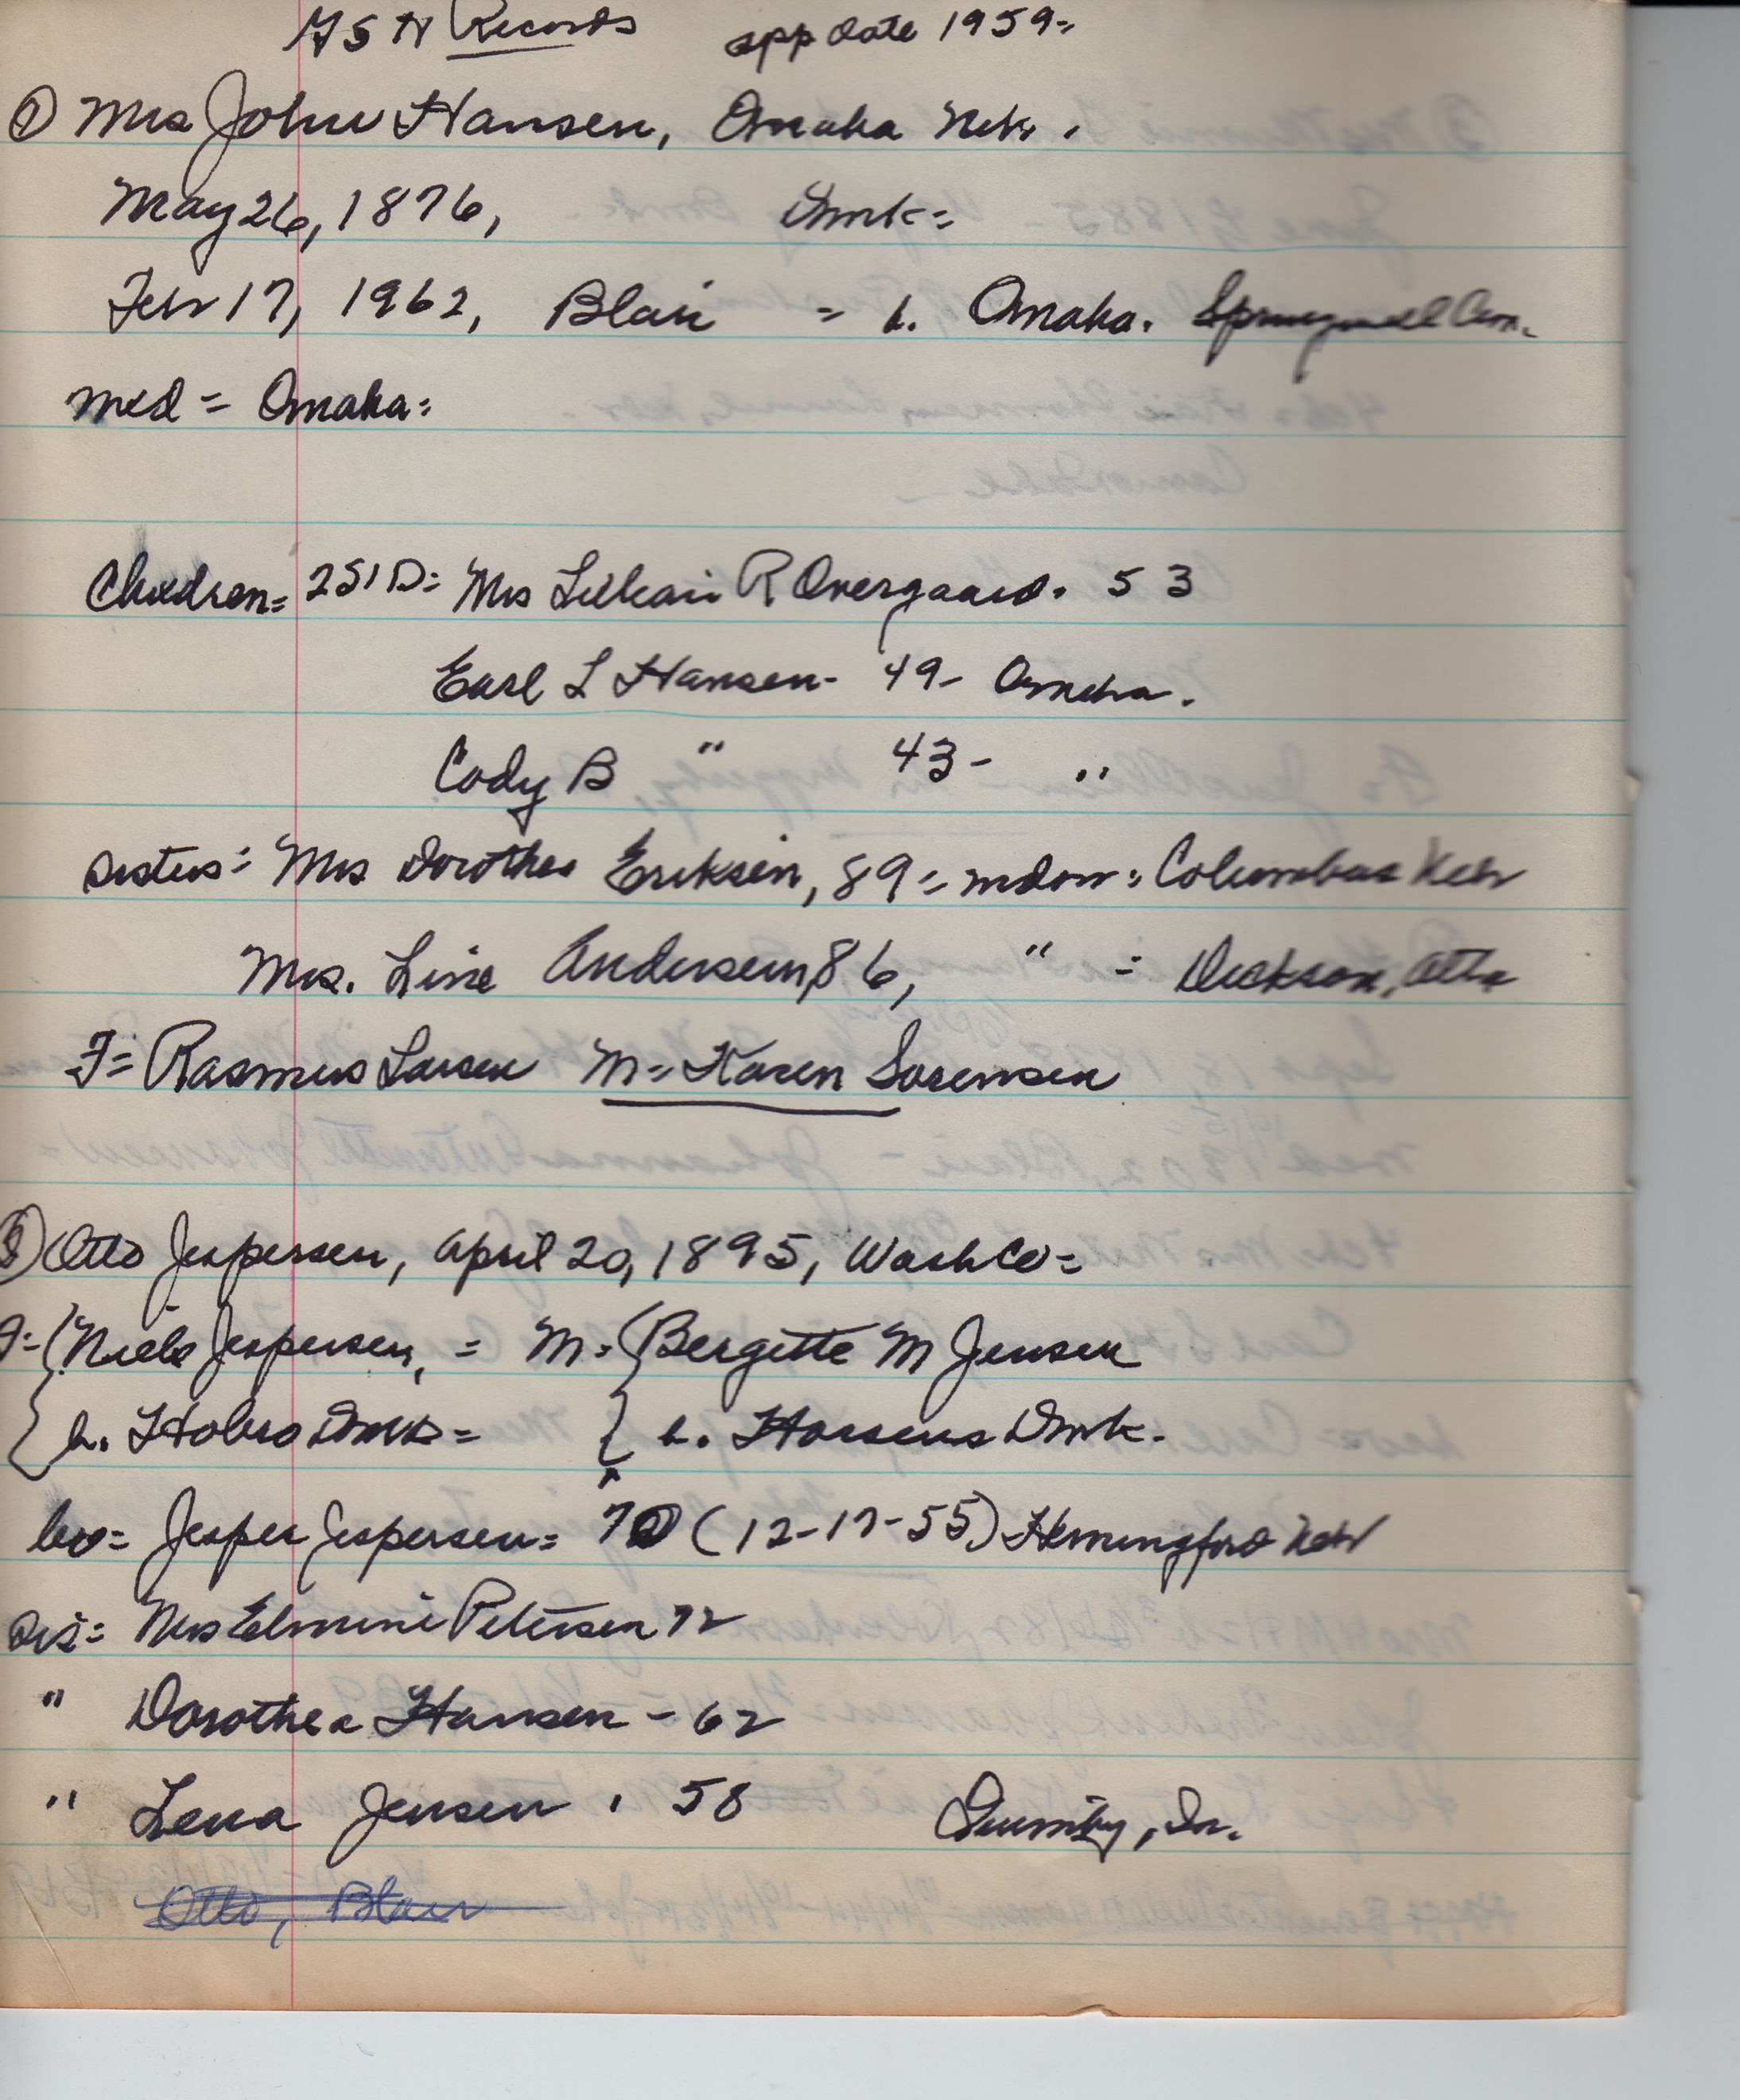 GSH Records app date 1959=
① Mrs John Hansen, Omaha Nebr.
May 26, 1876, Dmk=
Febr 17, 1962, Blair = b. Omaha. Springwell Cem.
med = Omaha=
Children= 2S 1D= Mrs Lillian R Overgaard. 53
Earl L Hansen- 49- Omaha.
Cody B " 43- "
Sisters= Mrs Dorothea Eriksen, 89= widow= Columbus Nebr
Mrs. Line Andersen, 86, " = Dickson, Alta
F= Rasmus Larsen M= Karen Sorensen
Otto Jespersen, April 20, 1895, Wash Co=
F= Niels Jespersen, = M= Bergitte M Jensen
b. Hobro Dmk= b. Horsens Dmk.
bro= Jesper Jespersen= 70 (12-17-55) Hemingford Nebr
sis= Mrs Elmine Petersen 72
" Dorothea Hansen - 62
" Lena Jensen. 58 Quimby, Ia.
Otto, Blair